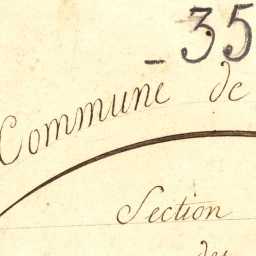 35
Commune de
Section
de